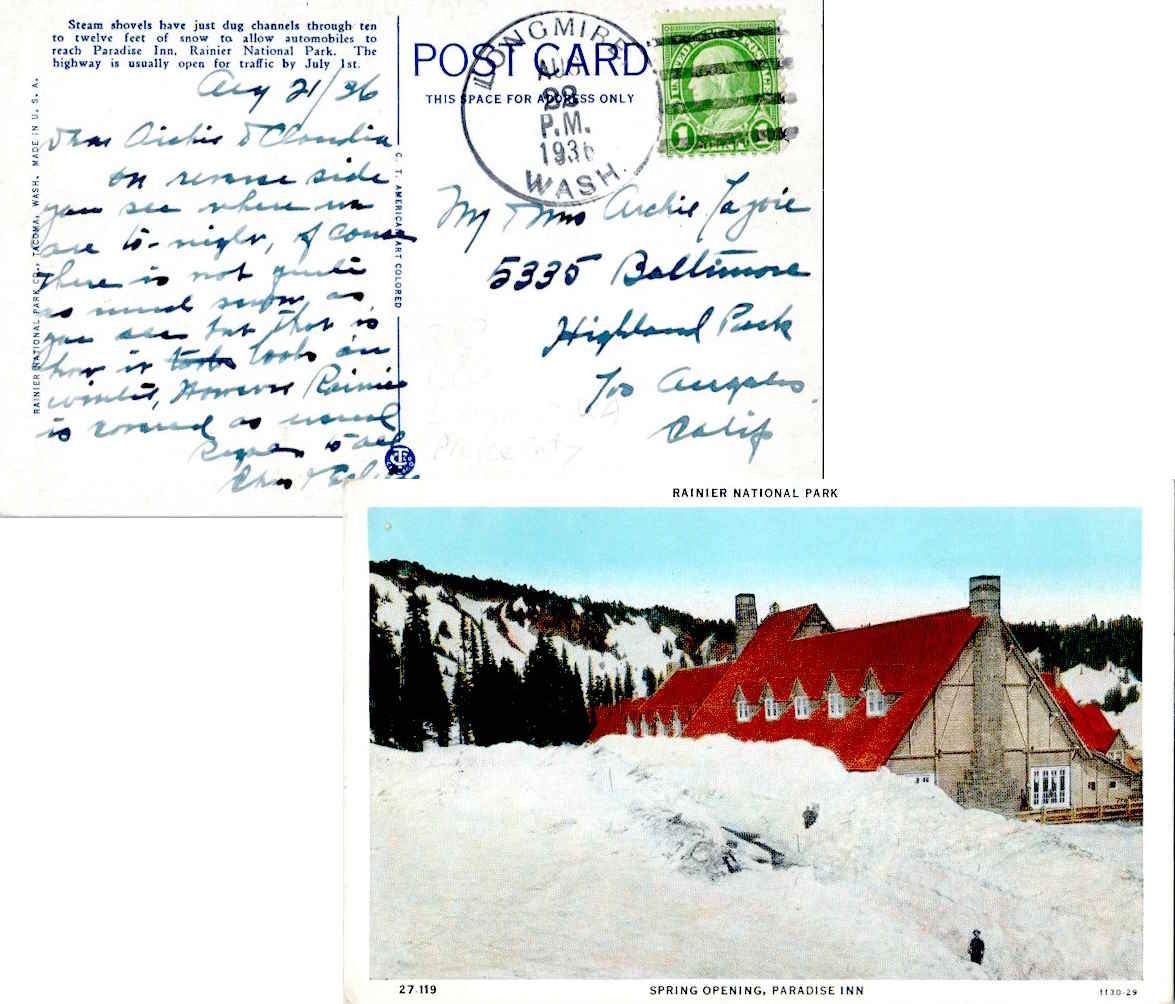 Steam shovels have just dug channels through ten
to twelve feet of snow to allow automobiles to
reach Paradise Inn, Rainier National Park. The
highway is usually open for traffic by July 1st.
Aug 21/36
Dear Archie & Claudia
On reverse side
you see where we
are to-night, of course
there is not quite
as much snow as
you see but that is
how it looks in
winter, However Rainier
is covered as usual
Regards to all
Chas &
RAINIER NATIONAL PARK CO., TACOMA, WASH. MADE IN U. S. A.
C. T. AMERICAN ART COLORED
POST CARD
THIS SPACE FOR ADDRESS ONLY
LONGMIRE
AUG
22
P.M.
1936
WASH.
UNITED STATES POSTAGE
1 1
Mr & Mrs Archie Lajoie
5335 Baltimore
Highland Park
Los Angeles
Calif
RAINIER NATIONAL PARK
27-119
SPRING OPENING, PARADISE INN
1130-29